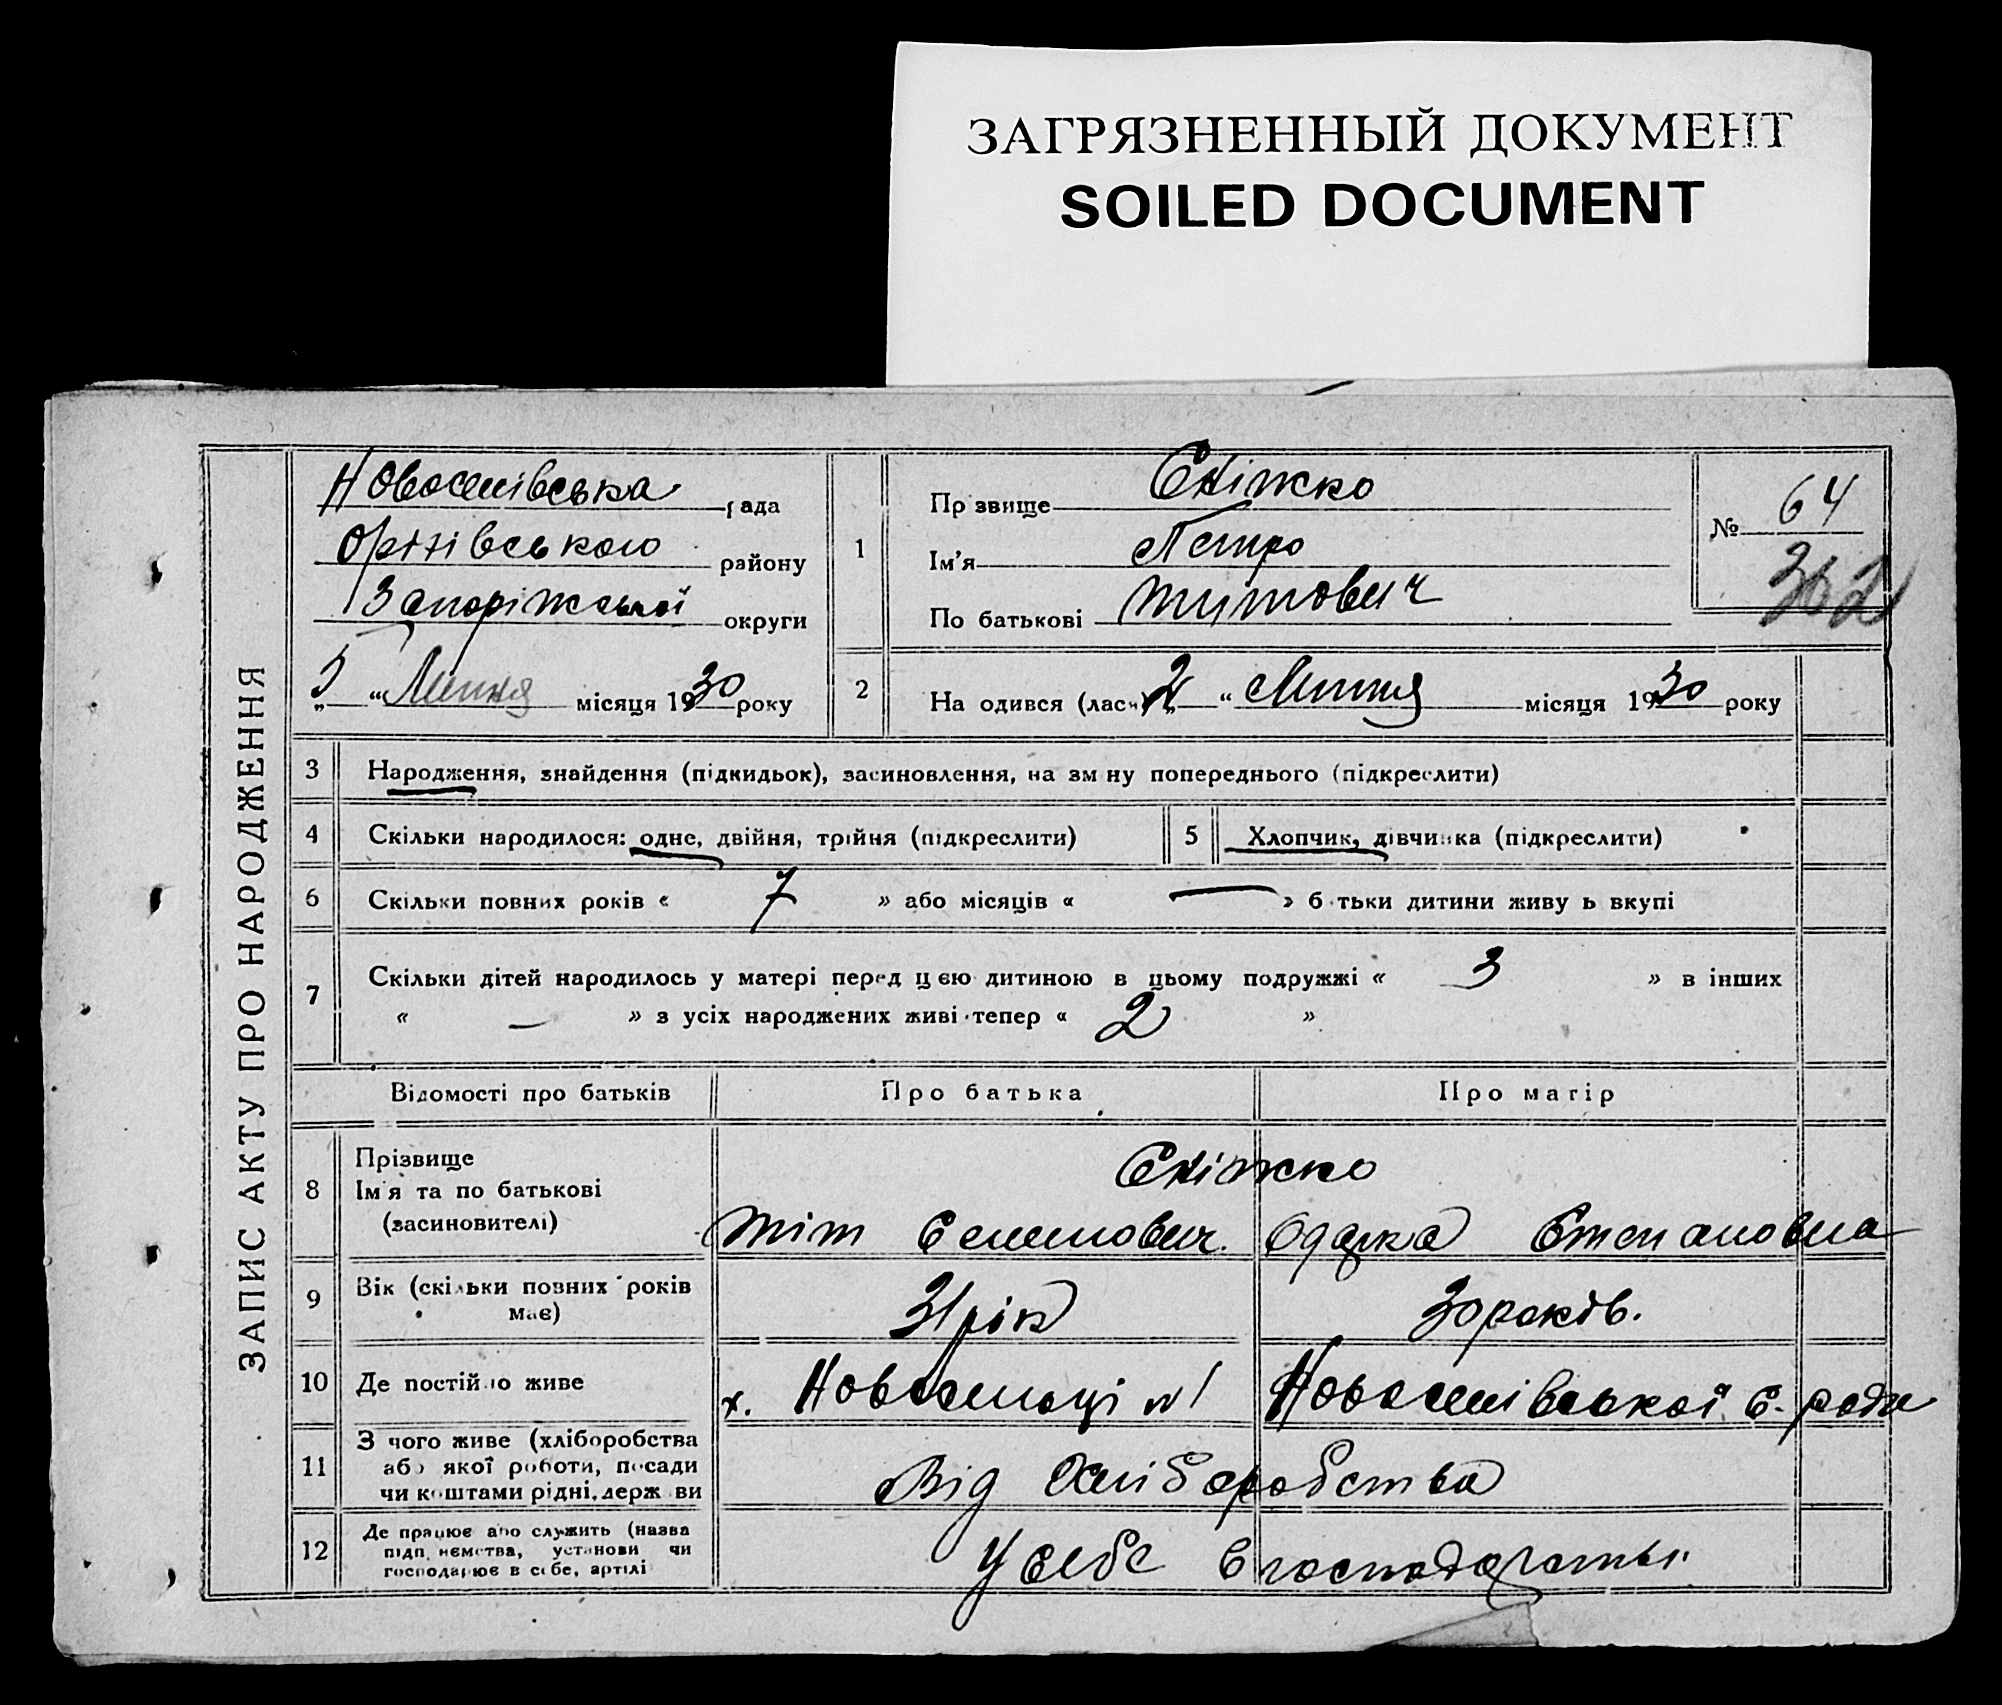 ЗАГРЯЗНЕННЫЙ ДОКУМЕНТ
SOILED DOCUMENT
ЗАПИС АКТУ ПРО НАРОДЖЕННЯ
рада
Оріхівського району
Запоріжської округи
5 " Липня місяця 1930 року
1
Прізвище Сніжко
Ім'я Петро
По батькові Титович
№ 64
2
На одився (лась) „2 " Липня місяця 1930 року
3 Народження, знайдення (підкидьок), засиновлення, на зміну попереднього (підкреслити)
4 Скільки народилося: одне, двійня, трійня (підкреслити) 5 Хлопчик, дівчинка (підкреслити)
6 Скільки повних років « 7 » або місяців « — » батьки дитини живуть вкупі
7 Скільки дітей народилось у матері перед цією дитиною в цьому подружжі « 3 » в інших
« — » з усіх народжених живі тепер « 2 »
Відомості про батьків Про батька Про матір
8 Прізвище
Ім'я та по батькові
(засиновителі)
Сніжко
Тіт Семенович Одарка Степановна
9 Вік (скільки повних років
має)
31 рік 30 років.
10 Де постійно живе х. №1 с. ради
11 З чого живе (хліборобства
або якої роботи, посади
чи коштами рідні, держави
Від Хліборобства
12 Де працює або служить (назва
підприємства, установи чи
господарює в себе, артілі
У себе в